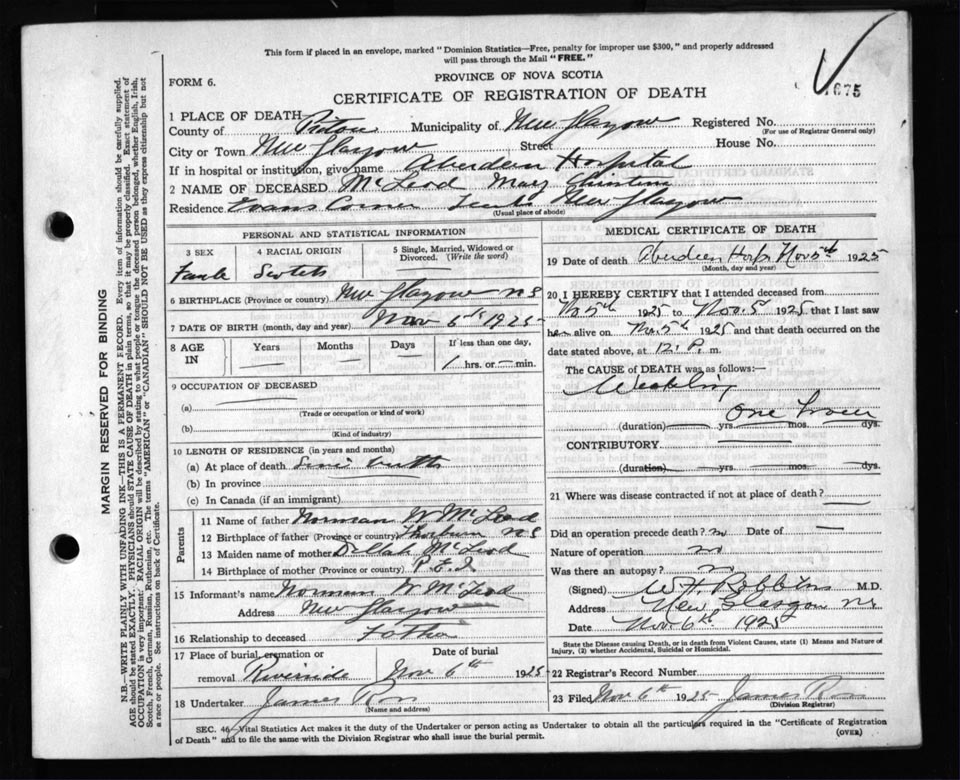 This form if placed in an envelope, marked "Dominion Statistics—Free, penalty for improper use $300," and properly addressed
will pass through the Mail "FREE."
FORM 6.
PROVINCE OF NOVA SCOTIA
CERTIFICATE OF REGISTRATION OF DEATH
675
1 PLACE OF DEATH
County of Pictou Municipality of New Glasgow Registered No.
(For use of Registrar General only)
City or Town New Glasgow Street House No.
If in hospital or institution, give name Aberdeen Hospital
2 NAME OF DECEASED McLeod Mary Christina
Residence Evans Corner New Glasgow
(Usual place of abode)
PERSONAL AND STATISTICAL INFORMATION
3 SEX 4 RACIAL ORIGIN 5 Single, Married, Widowed or Divorced. (Write the word)
Scotch
6 BIRTHPLACE (Province or country) New Glasgow NS
7 DATE OF BIRTH (month, day and year) Nov 6th 1925
8 AGE IN Years Months Days If less than one day,
1 hrs. or — min.
9 OCCUPATION OF DECEASED
(a)
(Trade or occupation or kind of work)
(b)
(Kind of industry)
10 LENGTH OF RESIDENCE (in years and months)
(a) At place of death Since birth
(b) In province
(c) In Canada (if an immigrant)
Parents
11 Name of father Norman W McLeod
12 Birthplace of father (Province or country) NS
13 Maiden name of mother McLeod
14 Birthplace of mother (Province or country) P.E.I.
15 Informant's name Norman W McLeod
Address New Glasgow
16 Relationship to deceased Father
17 Place of burial, cremation or removal Riverside Date of burial Nov 6th 1925
18 Undertaker James Ross
(Name and address)
MEDICAL CERTIFICATE OF DEATH
19 Date of death Aberdeen Hosp Nov 5th 1925
(Month, day and year)
20 I HEREBY CERTIFY that I attended deceased from
Nov 5th 1925 to Nov. 5 1925 that I last saw
h alive on Nov. 5th 1925 and that death occurred on the
date stated above, at 12 P. m.
The CAUSE OF DEATH was as follows:—
One hour
(duration) yrs. mos. dys.
CONTRIBUTORY.
(duration) yrs. mos. dys.
21 Where was disease contracted if not at place of death?
Did an operation precede death? no Date of —
Nature of operation no
Was there an autopsy? no
(Signed) W H Robbins M.D.
Address New Glasgow NS
Date Nov 6th 1925
State the Disease causing Death, or in death from Violent Causes, state (1) Means and Nature of
Injury, (2) whether Accidental, Suicidal or Homicidal.
22 Registrar's Record Number
23 Filed Nov 6th 1925 James Ross
(Division Registrar)
SEC. 46 Vital Statistics Act makes it the duty of the Undertaker or person acting as Undertaker to obtain all the particulars required in the "Certificate of Registration
of Death" and to file the same with the Division Registrar who shall issue the burial permit.
(OVER)
MARGIN RESERVED FOR BINDING
N.B.—WRITE PLAINLY WITH UNFADING INK—THIS IS A PERMANENT RECORD. Every item of information should be carefully supplied.
AGE should be stated EXACTLY. PHYSICIANS should STATE CAUSE OF DEATH in plain terms, so that it may be properly classified. Exact statement of
OCCUPATION is very important. RACIAL ORIGIN will be described by stating to what people or tongue the deceased person belonged, whether English, Irish,
Scotch, French, German, Russian, Ruthenian, etc. The terms "AMERICAN" or "CANADIAN" SHOULD NOT BE USED as they express citizenship but not
a race or people. See instructions on back of Certificate.